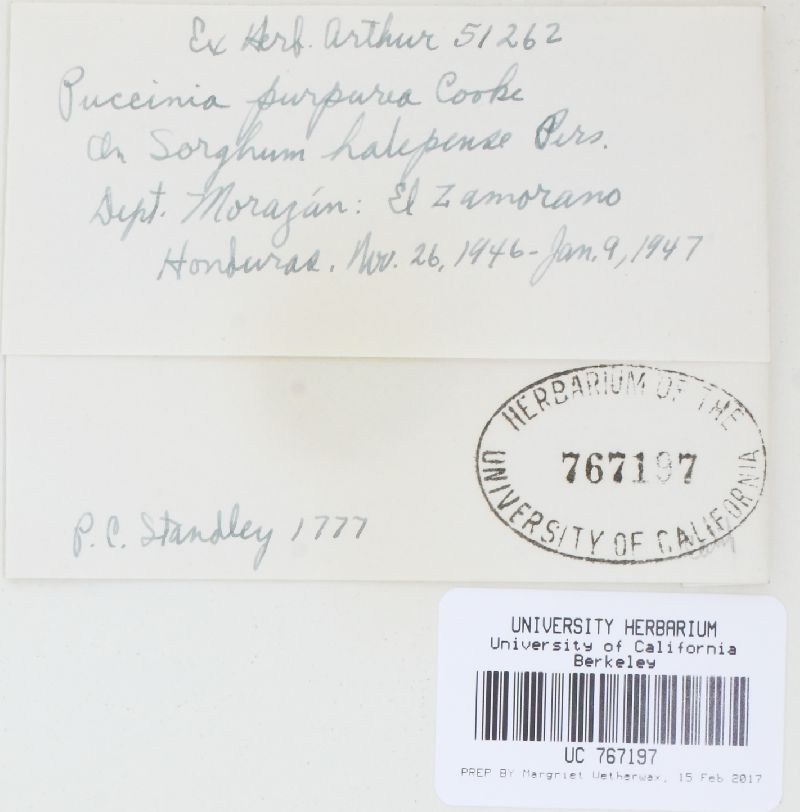 Ex Herb. Arthur 51262
Puccinia purpurea Cooke
On Sorghum halepense Pers.
Dept. Morazán: El Zamorano
Honduras. Nov. 26, 1946 - Jan. 9, 1947
HERBARIUM OF THE
767197
UNIVERSITY OF CALIFORNIA
P. C. Standley 1777
UNIVERSITY HERBARIUM
University of California
Berkeley
UC 767197
PREP BY Margriet Wetherwax, 15 Feb 2017